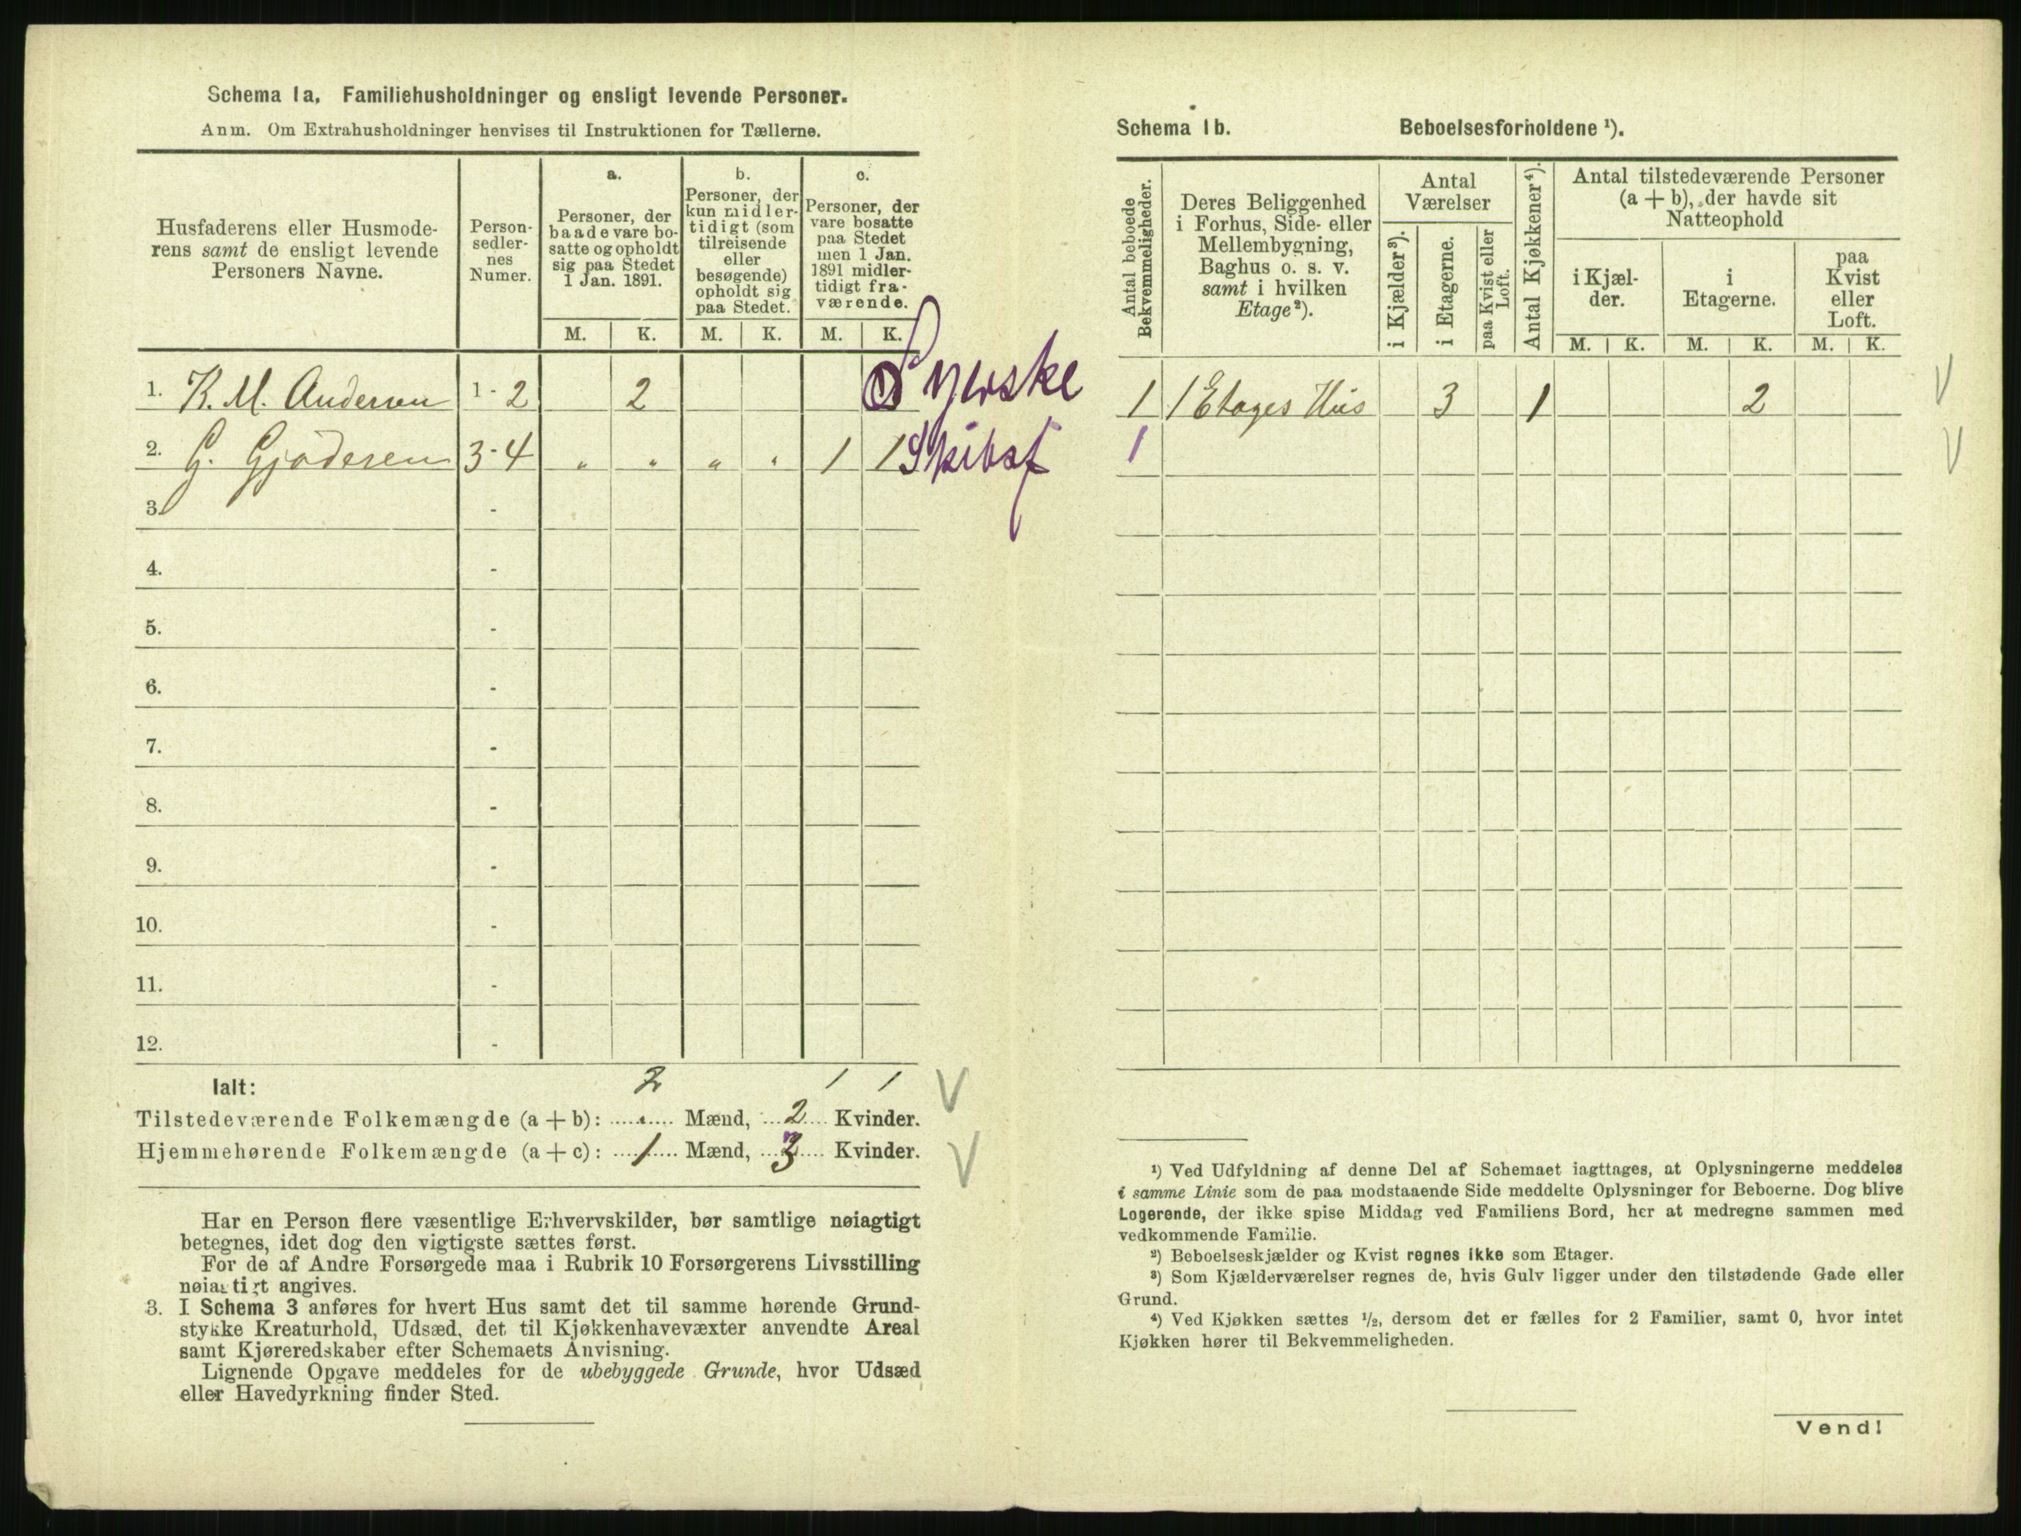 Schema 1a. Familiehusholdninger og ensligt levende Personer.
Anm. Om Extrahusholdninger henvises til Instruktionen for Tællerne.
Husfaderens eller Husmode-
rens samt de ensligt levende
Personers Navne.
Person-
sedler-
nes
Numer.
a.
Personer, der
baade vare bo-
satte og opholdt
sig paa Stedet
1 Jan. 1891.
b.
Personer, der
kun midler-
tidigt (som
tilreisende
eller
besøgende)
opholdt sig
paa Stedet.
c.
Personer, der
vare bosatte
paa Stedet
men 1 Jan.
1891 midler-
tidigt fra-
værende.
M. K. M. K. M. K.
1. K. M. Andersen 1 - 2 2 Syerske
2. G. Gjødesen 3 - 4 " " " " 1 1 Skibsf
3. -
4. -
5. -
6. -
7. -
8. -
9. -
10. -
11. -
12. -
Ialt: 2 1 1
Tilstedeværende Folkemængde (a + b): " Mænd, 2 Kvinder.
Hjemmehørende Folkemængde (a + c): 1 Mænd, 3 Kvinder.
Har en Person flere væsentlige Erhvervskilder, bør samtlige nøiagtigt
betegnes, idet dog den vigtigste sættes først.
For de af Andre Forsørgede maa i Rubrik 10 Forsørgerens Livsstilling
nøiagtigt angives.
3. I Schema 3 anføres for hvert Hus samt det til samme hørende Grund-
stykke Kreaturhold, Udsæd, det til Kjøkkenhavevæxter anvendte Areal
samt Kjøreredskaber efter Schemaets Anvisning.
Lignende Opgave meddeles for de ubebyggede Grunde, hvor Udsæd
eller Havedyrkning finder Sted.
Schema 1b. Beboelsesforholdene ¹).
Antal beboede
Bekvemmeligheder.
Deres Beliggenhed
i Forhus, Side- eller
Mellembygning,
Baghus o. s. v.
samt i hvilken
Etage²).
Antal
Værelser
i Kjælder³).
i Etagerne.
paa Kvist eller
Loft.
Antal Kjøkkener⁴).
Antal tilstedeværende Personer
(a + b), der havde sit
Natteophold
i Kjæl-
der.
i
Etagerne.
paa
Kvist
eller
Loft.
M. K. M. K. M. K.
1 1 Etages Hus 3 1 2
1
¹) Ved Udfyldning af denne Del af Schemaet iagttages, at Oplysningerne meddeles
i samme Linie som de paa modstaaende Side meddelte Oplysninger for Beboerne. Dog blive
Logerende, der ikke spise Middag ved Familiens Bord, her at medregne sammen med
vedkommende Familie.
²) Beboelseskjælder og Kvist regnes ikke som Etager.
³) Som Kjælderværelser regnes de, hvis Gulv ligger under den tilstødende Gade eller
Grund.
⁴) Ved Kjøkken sættes ½, dersom det er fælles for 2 Familier, samt 0, hvor intet
Kjøkken hører til Bekvemmeligheden.
Vend!